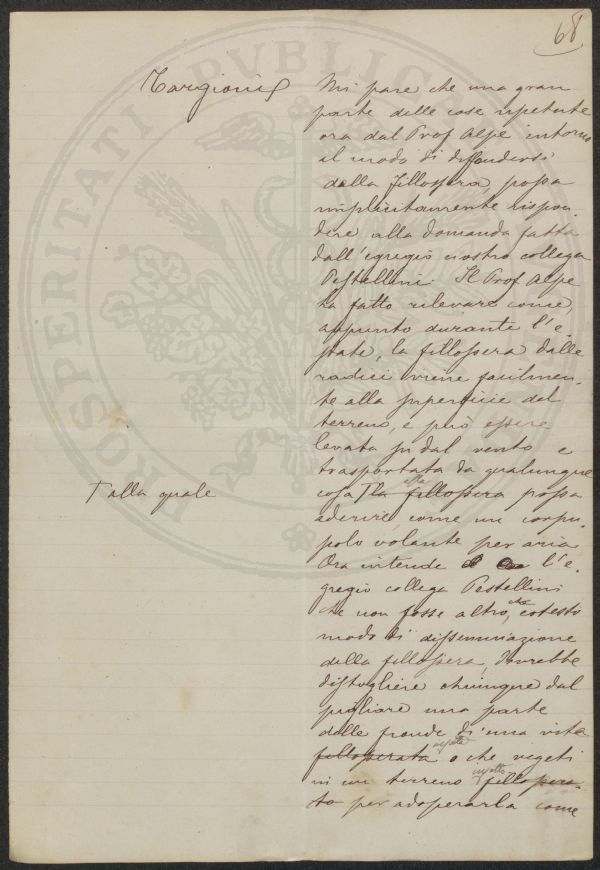 68
Targioni
Mi pare che una gran
parte delle cose ripetute
ora dal Prof Alpe intorno
al modo di diffondersi
della fillossera, possa
implicitamente rispon-
dere alla domanda fatta
dall'egregio nostro collega
Pestellini. Il Prof Alpe
ha fatto rilevare come,
appunto durante l'e-
state, la fillossera dalle
radici viene facilmen-
te alla superficie del
terreno, e può essere
levata su dal vento e
trasportata da qualunque
cosa T la fillossera possa
essa
T alla quale
aderire, come un corpu-
scolo volante per aria
Ora intende l'e-
gregio collega Pestellini
che non fosse altro, cotesto
modo di disseminazione
della fillossera, dovrebbe
distogliere chiunque dal
pigliare una parte
delle fronde di una vite
fillosserata o che vegeti
infetta
in un terreno fillossera-
infetto
to per adoperarla come
PROSPERITATI PVBLICAE